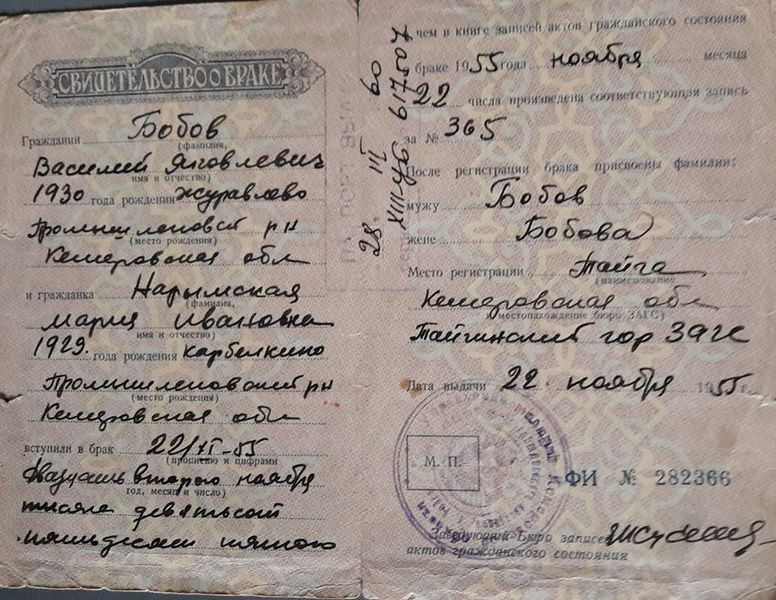 СВИДЕТЕЛЬСТВО О БРАКЕ
Гражданин Бобов
(фамилия,
Василий Яковлевич
имя и отчество)
1930 года рождения Журавлево
Промышленовский рн
(место рождения)
Кемеровская обл
и гражданка Нарымская
(фамилия,
Мария Ивановна
имя и отчество)
1929. года рождения Карбелкино
Промышленовский рн
(место рождения)
Кемеровская обл
вступили в брак 22/XI-55
(прописью и цифрами
двадцать второго ноября
год, месяц и число)
тысяча девятьсот
пятьдесят пятого
чем в книге записей актов гражданского состояния
браке 1955 года ноября месяца
22 числа произведена соответствующая запись
за № 365
После регистрации брака присвоены фамилии:
мужу Бобов
жене Бобова
Место регистрации Тайга
(наименование
Кемеровская обл
и местонахождение бюро ЗАГС)
Тайгинский гор ЗАГС
Дата выдачи 22 ноября 1955 г.
М. П.
ФИ № 282366
Заведующий Бюро записей
актов гражданского состояния
28. III 60
XIII-УБ 617507